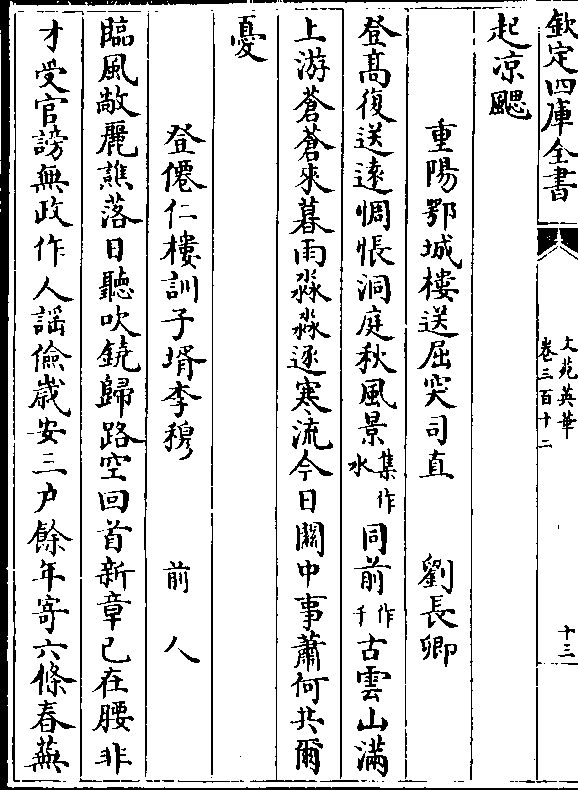 欽定四庫全書
文苑英華
卷三百十二
十三
起凉颸
重陽鄂城樓送屈突司直 劉長卿
登髙復送遠惆悵洞庭秋風景集作水同前作千古雲山滿
上游蒼蒼來暮雨淼淼逐寒流今日關中事蕭何共爾
憂
登僊仁樓訓子壻李穆 前人
臨風敞麗譙落日聽吹鐃歸路空回首新章已在腰非
才受官謗無政作人謡儉歲安三户餘年寄六條春蕪